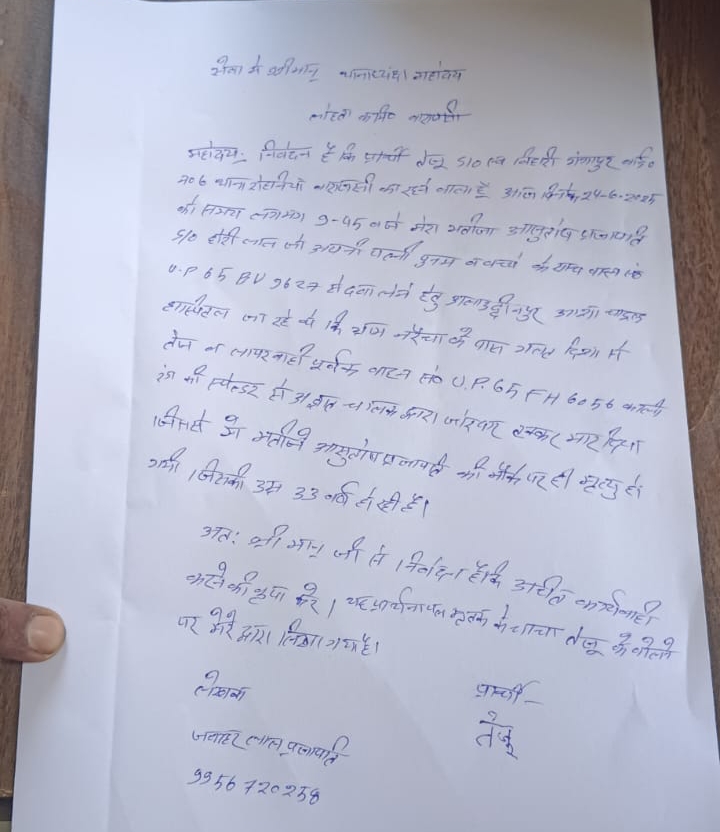 सेवा में श्रीमान् थानाध्यक्ष महोदय
लोहता कमि० वाराणसी
महोदय, निवेदन है कि प्रार्थी तेजू S/O स्व बिहारी गंगापुर वार्ड०
न० 6 थाना रोहनियाँ वाराणसी का रहने वाला है आज दिनांक 24-6-2025
को समय लगभग 9-45 बजे मेरा भतीजा आशुतोष प्रजापति
S/O होरी लाल जो अपनी पत्नी पुनम व बच्चे के साथ वाहन सं०
U.P 65 BU 9627 से दवा लेने हेतु अलाउद्दीनपुर आशा
हास्पिटल जा रहे थे कि ग्राम भरैचा के पास गलत दिशा से
तेज व लापरवाही पूर्वक वाहन सं० U.P. 65 FH 6056 काली
रंग की स्पेलेंडर से अज्ञात चालक द्वारा जोरदार टक्कर मार दिया
जिससे मेरे भतीजे आशुतोष प्रजापति की मौके पर ही मृत्यु हो
गयी। जिसकी उम्र 33 वर्ष हो रही है।
अतः श्री मान् जी से निवेदन है कि उचित कार्यवाही
करने की कृपा करें। यह प्रार्थना पत्र मृतक के चाचा तेजू के बोलने
पर मेरे द्वारा लिखा गया है।
लेखक
जवाहर लाल प्रजापति
9956720258
प्रार्थी -
तेजू